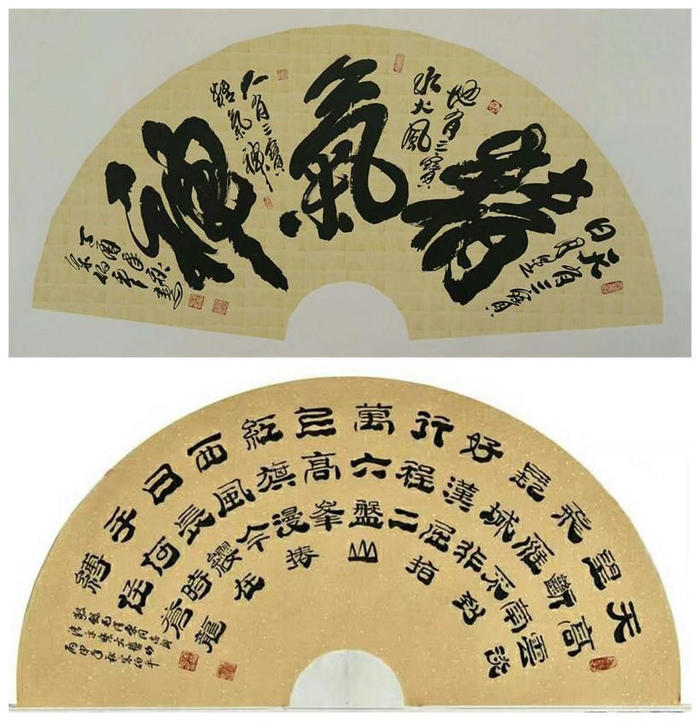 天有三寶
日月星
精
地有三寶
水火風
氣
人有三寶
精氣神
神
丁酉年
天高雲淡
望斷南
飛雁不到
長城非
好漢屈指
行程二
萬六盤山
上高峯
紅旗漫捲
西風今
日長纓在
手何時
縛住蒼龍
丙申年秋